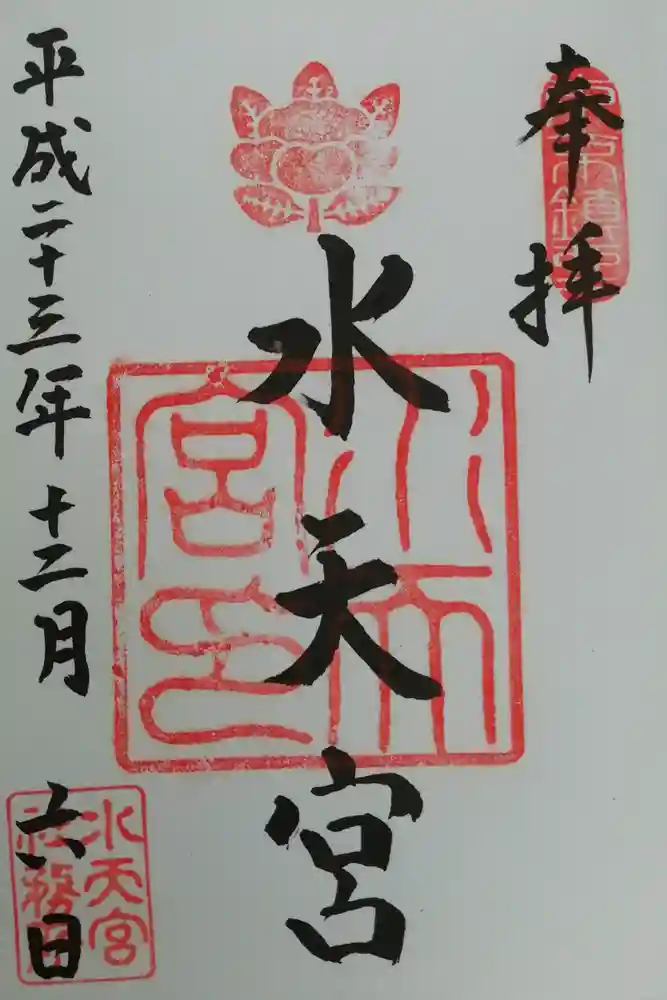 奉拝
水天宮
水天宮印
平成二十三年十二月六日
水天宮
社務所